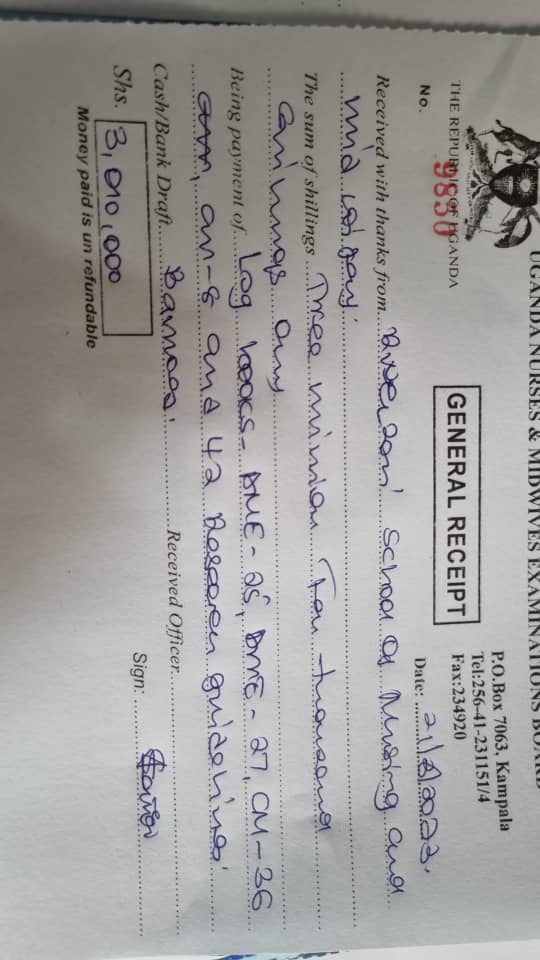 UGANDA NURSES & MIDWIVES EXAMINATIONS BOARD
THE REPUBLIC OF UGANDA
P.O.Box 7063, Kampala
Tel:256-41-231151/4
Fax:234920
GENERAL RECEIPT
No. 9830
Date: 21/8/2023.
Received with thanks from School of Nursing and
midwifery.
The sum of shillings Three million Ten thousand
shillings only
Being payment of Log books - DME - 25, DNE - 27, CM - 36
and 42 Research guidelines.
Cash/Bank Draft
Received Officer
Shs. 3,010,000
Sign:
Money paid is un refundable